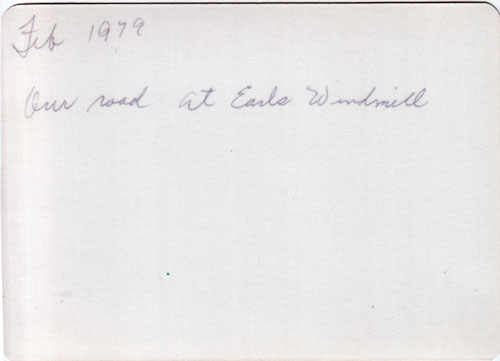 Feb 1979
Our road at Earls Windmill